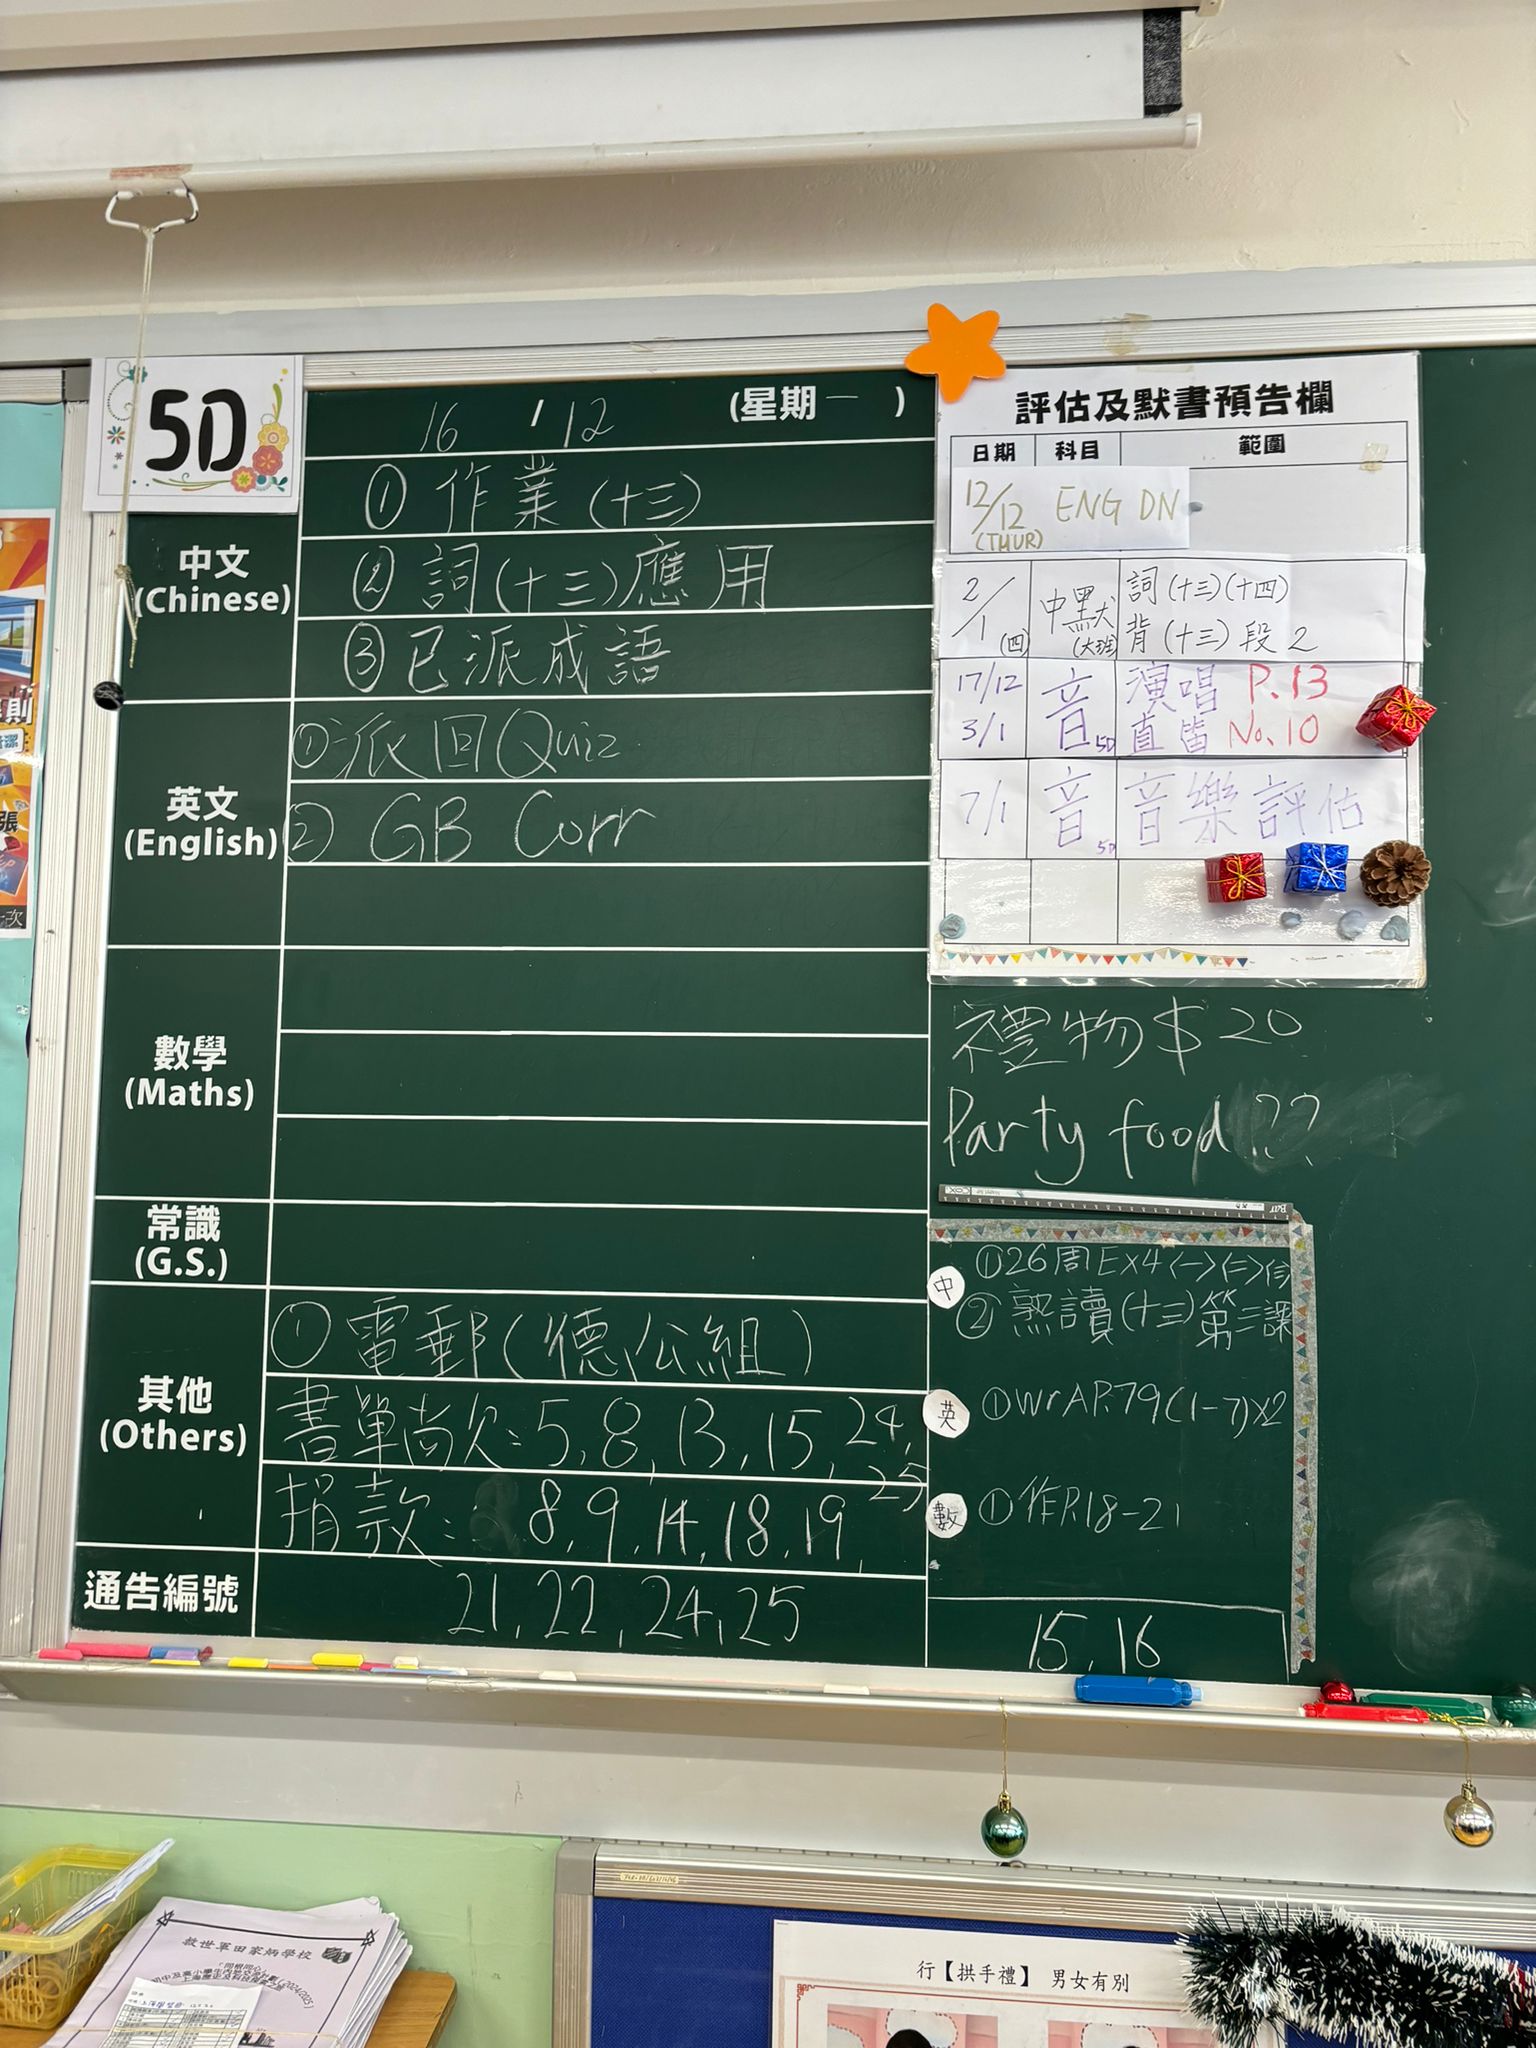 5D
16 / 12 (星期一)
中文
(Chinese)
① 作業(十三)
② 詞(十三)應用
③ 已派成語
英文
(English)
① 派回Quiz
② GB Corr
數學
(Maths)
常識
(G.S.)
其他
(Others)
① 電郵(德公組)
書單尚欠: 5, 8, 13, 15, 24, 25
捐款: 8, 9, 14, 18, 19,
通告編號
21, 22, 24, 25
評估及默書預告欄
日期 科目 範圍
12/12 (THUR) ENG DN
2/1 (四) 中默 (大班) 詞(十三)(十四)
背(十三)段2
17/12 音 5D 演唱 P.13
3/1 直笛 No.10
7/1 音 5D 音樂評估
禮物 $20
Party food??
中 ①26周Ex4<一><二>
② 熟讀(十三)第三課
英 ①WrAP.79(1-7)x2
數 ①作P.18-21
15, 16
救世軍田家炳學校
行【拱手禮】 男女有別